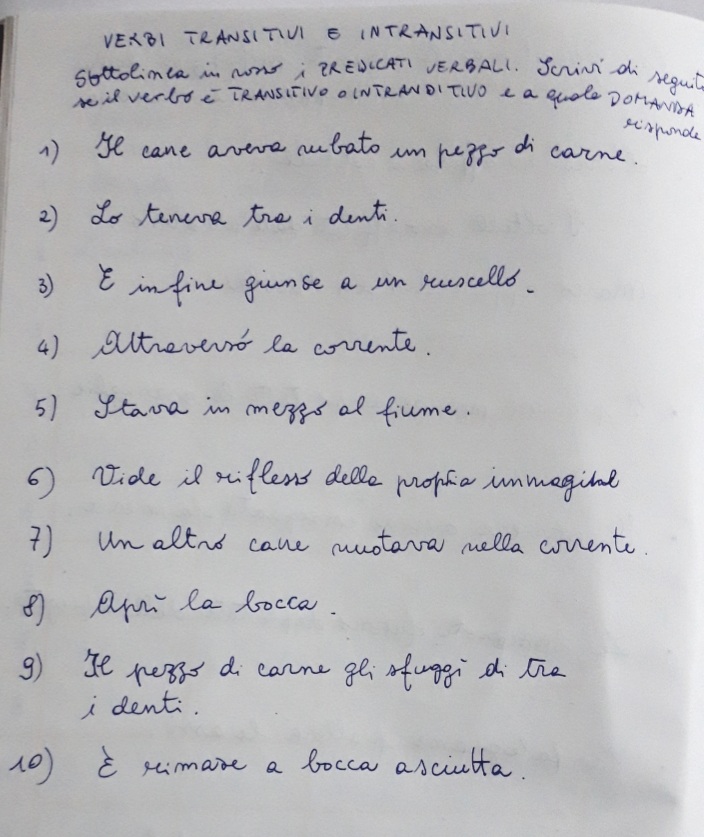 VERBI TRANSITIVI E INTRANSITIVI
Sottolinea in rosso i PREDICATI VERBALI. Scrivi di seguito
se il verbo è TRANSITIVO o INTRANDITIVO e a quale DOMANDA
risponde
1) Il cane aveva rubato un pezzo di carne.
2) Lo teneva tra i denti.
3) E infine giunse a un ruscello.
4) Attraversó la corrente.
5) Stava in mezzo al fiume.
6) Vide il riflesso della propria
7) Un altro cane nuotava nella corrente.
8) Aprì la bocca.
9) Il pezzo di carne gli sfuggì di tra
i denti.
10) E rimase a bocca asciutta.